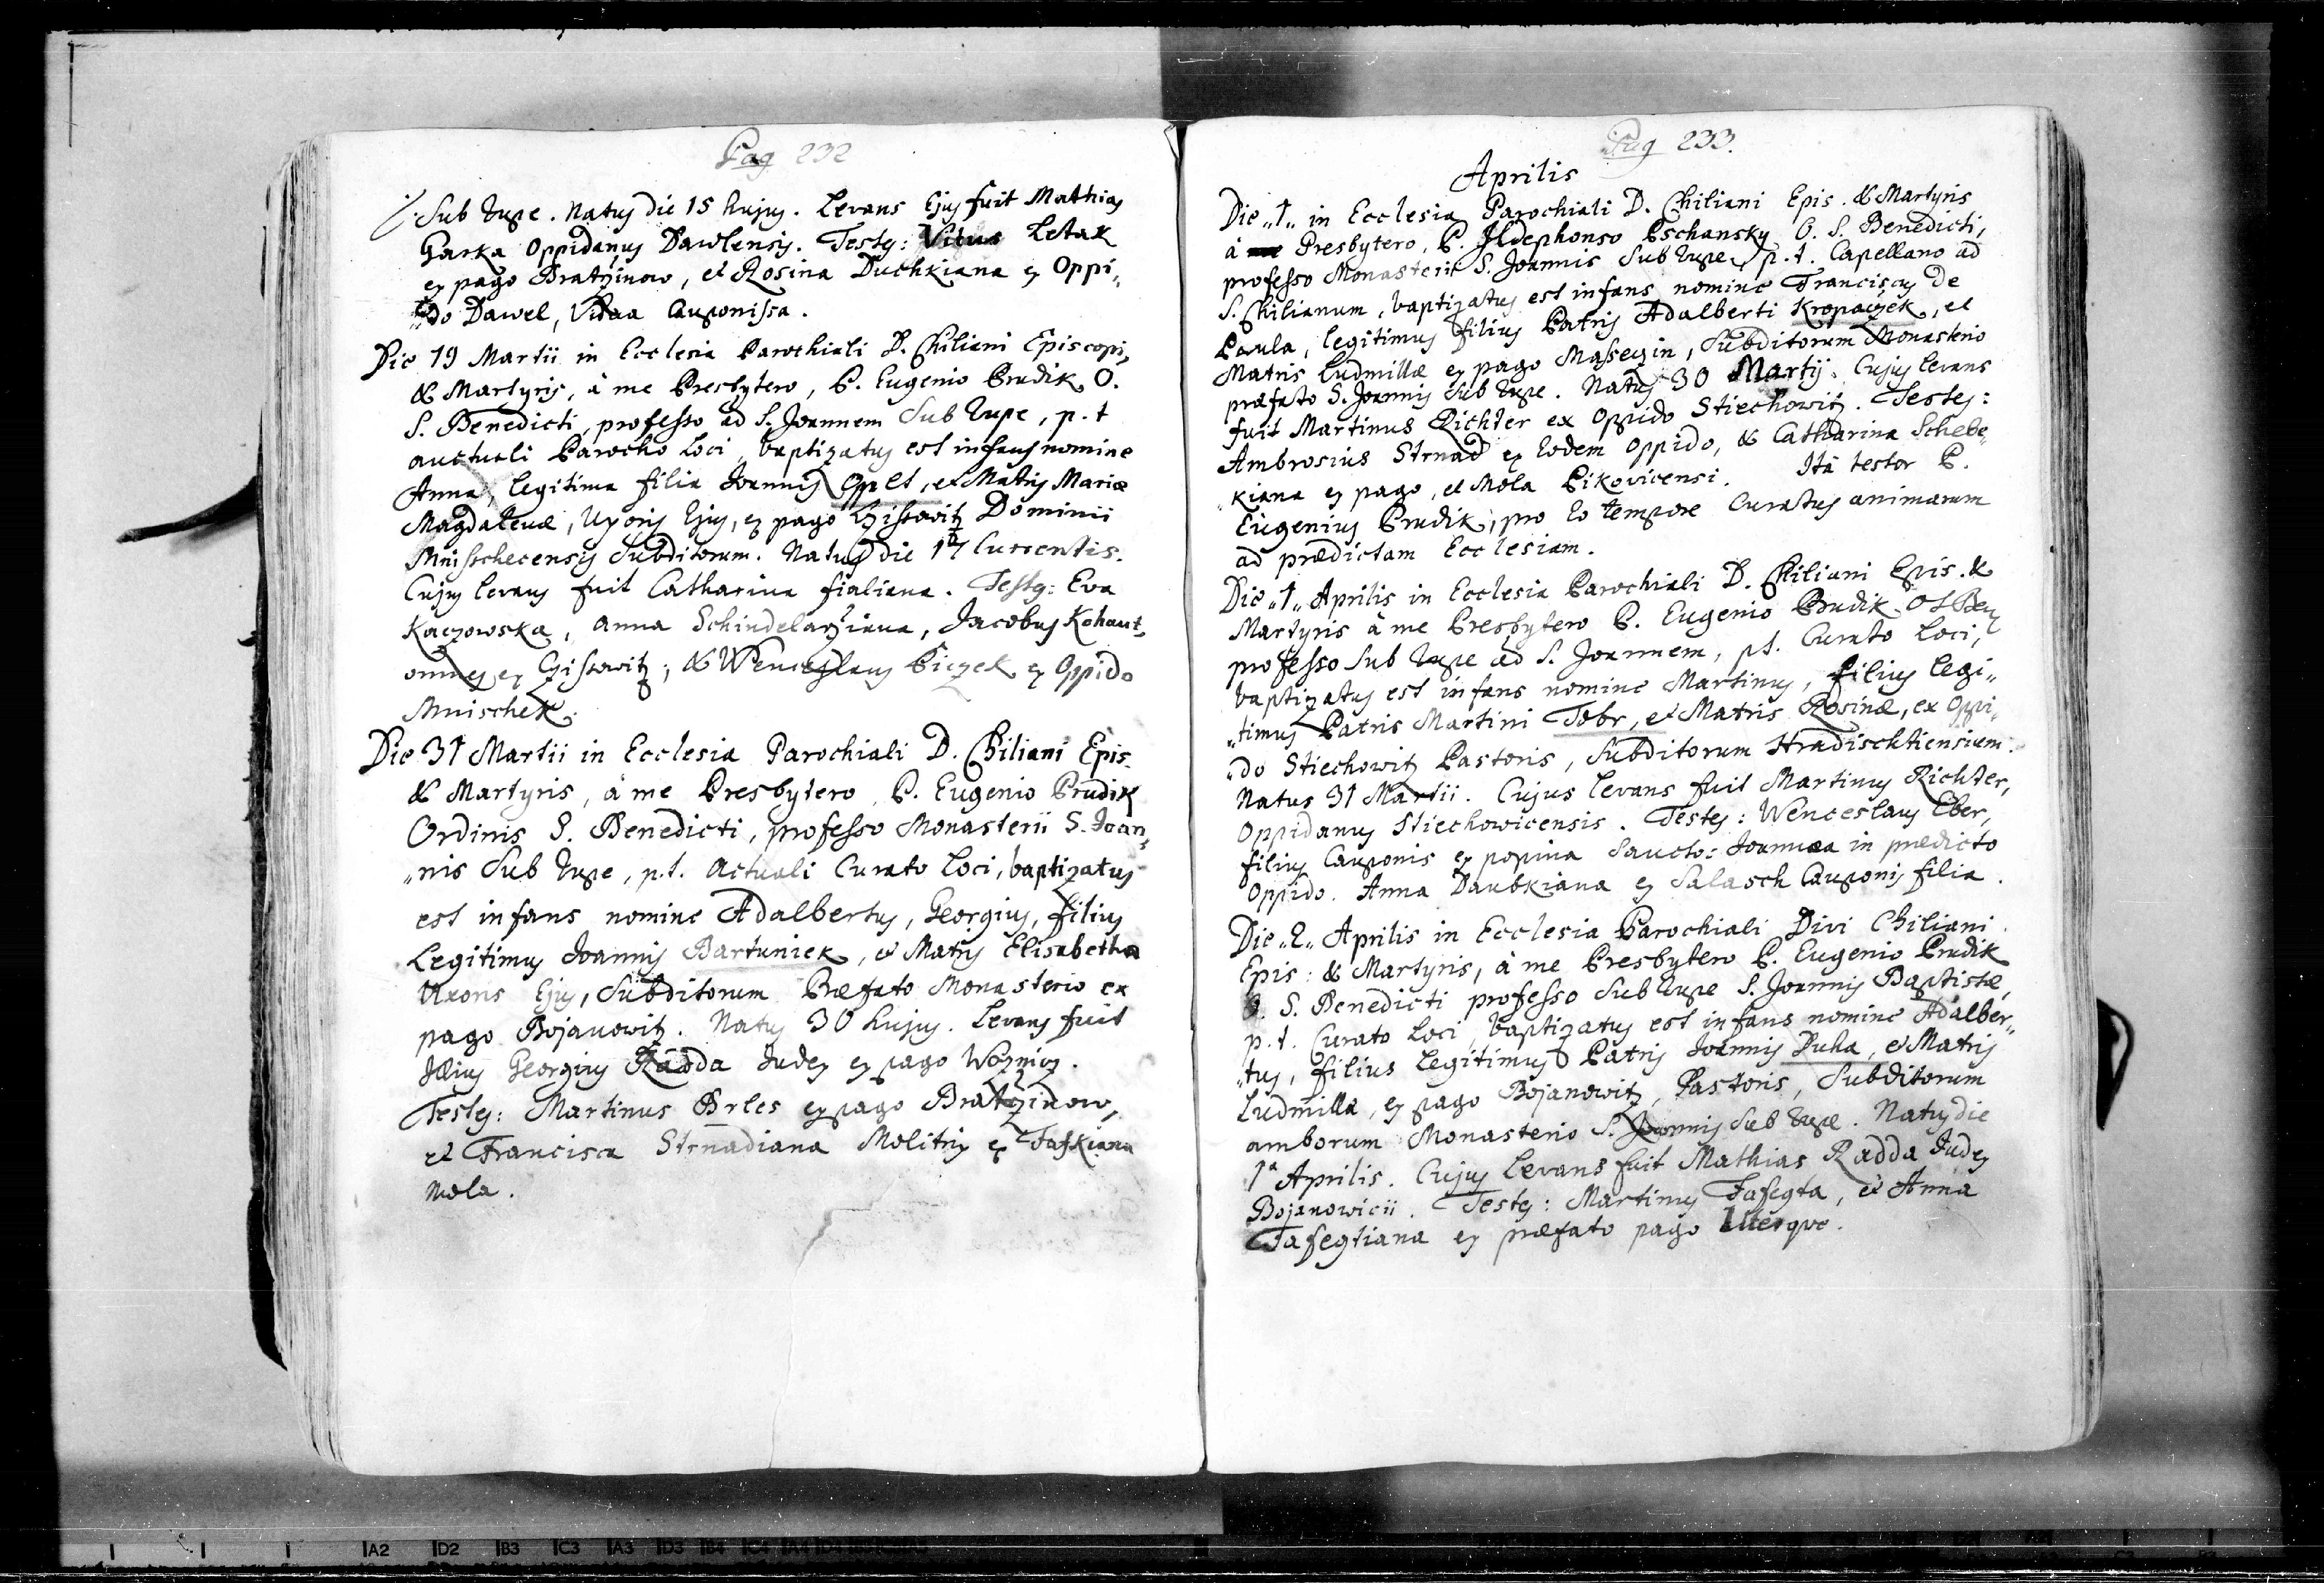 Pag 232
Sub Rupe. Natus die 15 hujus. Levans Ejus fuit Mathias
Garka Oppidanus Dawlensis. Testes: Vitus Letak
ex pago Bratrzinow, et Rosina Duchkiana ex Oppi„
„do Dawel, Vidua Cauponissa.
Die 19 Martii in Ecclesia Parochiali D. Chiliani Episcopi,
& Martyris, à me Presbytero, P. Eugenio Prudik O.
S. Benedicti, professo ad S. Joannem Sub Rupe, p. t
auctuali Parocho Loci, baptizatus est infans nomine
Anna, legitima filia Joannis Opelt, et Matris Mariæ
Magdalenæ, Uxoris Ejus, ex pago Czisowitz Dominii
Mnischecensis Subditorum. Natus die 17 Currentis.
Cujus levans fuit Catharina fialiana. Testes: Eva
Kaczowska, Anna Schindelarziana, Jacobus Kohaut,
omnes ex Czisowitz; & Wenceslaus Piczek ex Oppido
Mnischek.
Die 31 Martii in Ecclesia Parochiali D. Chiliani Epis.
& Martyris, à me Presbytero P. Eugenio Prudik
Ordinis S. Benedicti, professo Monasterii S. Joan„
„nis Sub Rupe, p. t. Actuali Curato Loci, baptizatus
est infans nomine Adalbertus, Georgius, filius
Legitimus Joannis Bartuniek, et Matris Elisabetha
Uxoris Ejus, Subditorum Præfato Monasterio ex
pago Bojanowitz. Natus 30 hujus. Levans fuit
Illius Georgius Radda Judex ex pago Woznicz.
Testes: Martinus Brles ex pago Bratrzinow,
et Francisca Strnadiana Molitrix ex Faskiana
Mola.
Pag 233.
Aprilis
Die „1„ in Ecclesia Parochiali D. Chiliani Epis. & Martyris
à Presbytero, P. Ildephonso Pschansky O. S. Benedicti,
professo Monasterii S. Joannis Sub Rupe, p. t. Capellano ad
S. Chilianum, baptizatus est infans nomine Franciscus De
Paula, legitimus filius Patris Adalberti Kropaczek, et
Matris Ludmillæ ex pago Masseczin, Subditorum Monasterio
præfato S. Joannis Sub Rupe. Natus 30 Martij. Cujus levans
fuit Martinus Richter ex Oppido Stiechowitz. Testes:
Ambrosius Strnad ex Eodem Oppido, & Catharina Schebe„
„kiana ex pago, et Mola Pikovicensi. Ità testor P.
Eugenius Prudik, pro Eo tempore Curatus animarum
ad prædictam Ecclesiam.
Die „1„ Aprilis in Ecclesia Parochiali D. Chiliani Epis. &
Martyris à me Presbytero P. Eugenio Prudik O S Ben
professo Sub Rupe ad S. Joannem, pt. Curato Loci,
baptizatus est infans nomine Martinus, filius legi„
„timus Patris Martini Tobr, et Matris Rosinæ, ex Oppi„
„do Stiechowitz Pastoris, Subditorum Hradischtiensium.
Natus 31 Martii. Cujus levans fuit Martinus Richter,
Oppidanus Stiechowicensis. Testes: Wenceslaus Eber,
filius Cauponis ex popina Sancto: Joannæa in prædicto
Oppido. Anna Daubkiana ex Salasch Cauponis filia.
Die „2„ Aprilis in Ecclesia Parochiali Divi Chiliani
Epis: & Martyris, à me Presbytero P. Eugenio Prudik
O. S. Benedicti professo Sub Rupe S. Joannis Baptistæ,
p. t. Curato Loci, baptizatus est infans nomine Adalber„
„tus, filius legitimus Patris Joannis Duha, et Matris
Ludmilla, ex pago Bojanowitz, Pastoris, Subditorum
amborum Monasterio S. Joannis Sub Rupe. Natus die
1ª Aprilis. Cujus levans fuit Mathias Radda Judex
Bojanowicii. Testes: Martinus Fafegta, et Anna
Fafegtiana ex præfato pago Uterque.